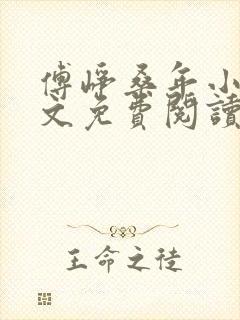 傅崢桑年小
文免費閱讀
王命之徒